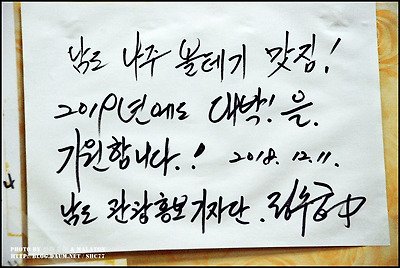 남도 나주 볼테기 맛집!
2019년에도 대박!을.
기원합니다.! 2018. 12. 11.
남도 관광홍보기자단.
PHOTO BY & MALAYSIA
HTTP://BLOG.DAUM.NET/SHC77